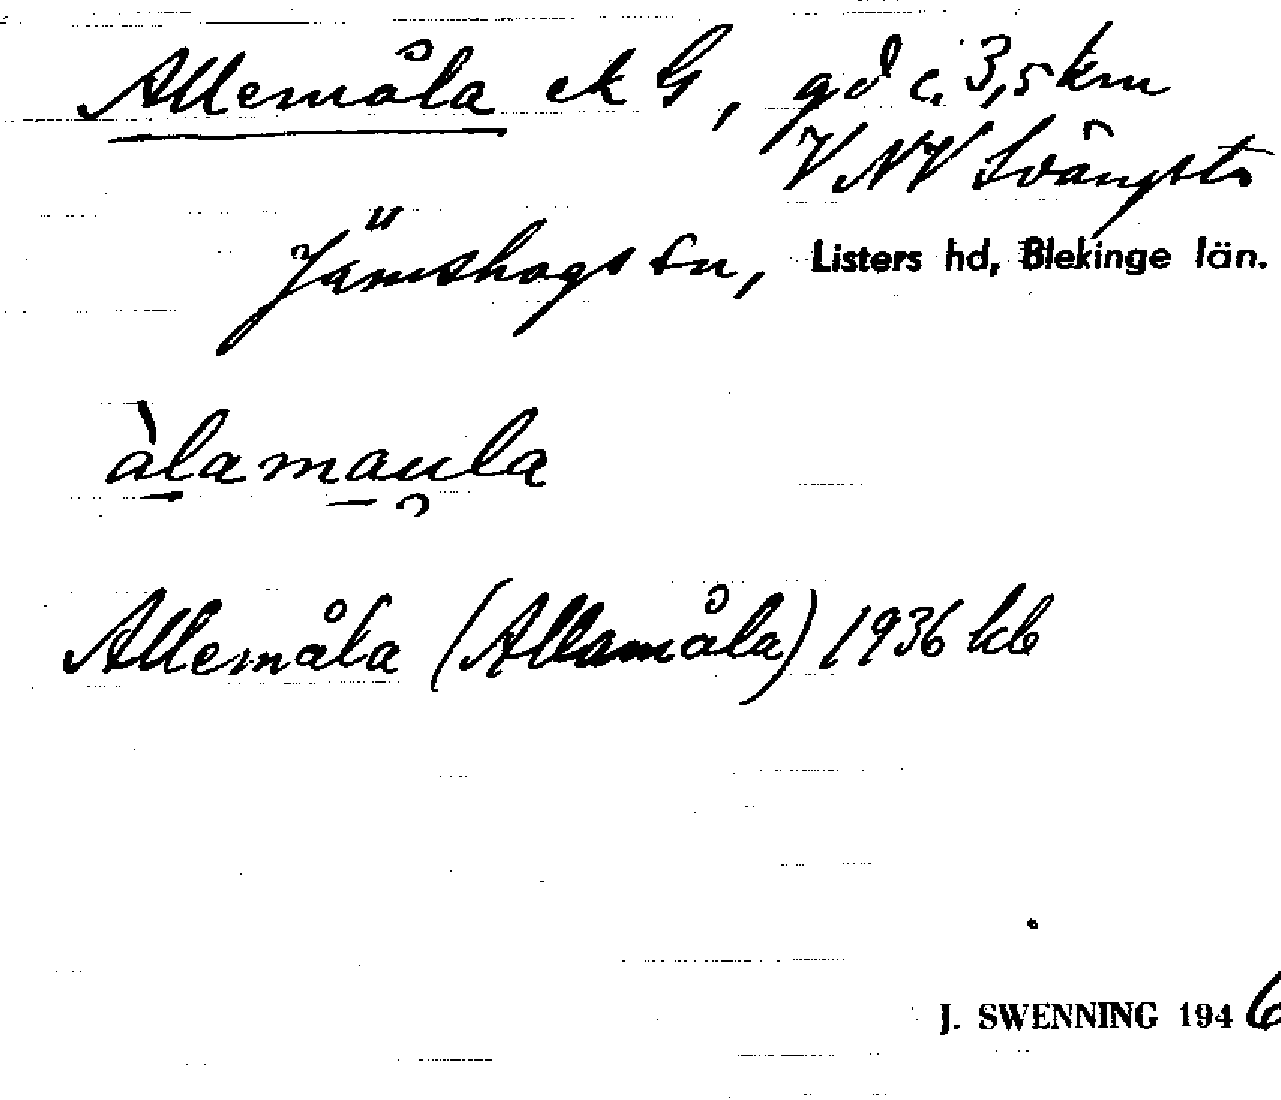 Allemåla ek G, gd c. 3,5 km
VNV Svängsta
Jämshogs sn, Listers hd, Blekinge län.
àlamau̯la
Allemåla (Allamåla) 1936 kb
J. SWENNING 1946